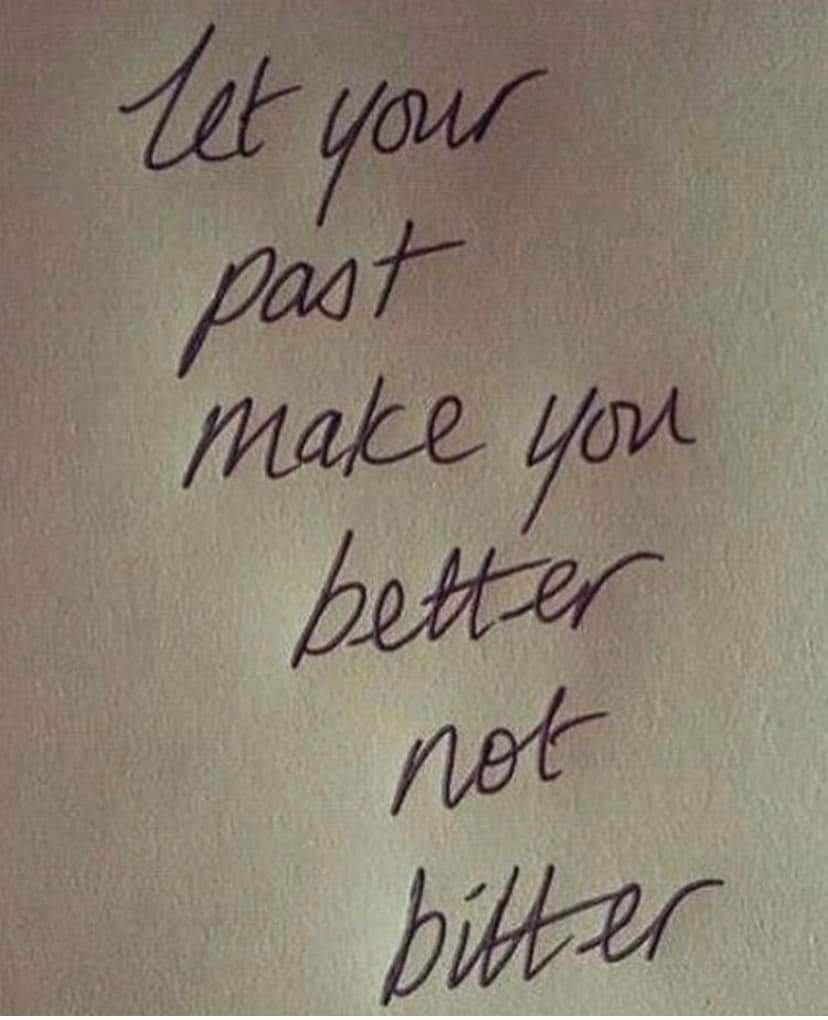 let your
past
make you
better
not
bitter